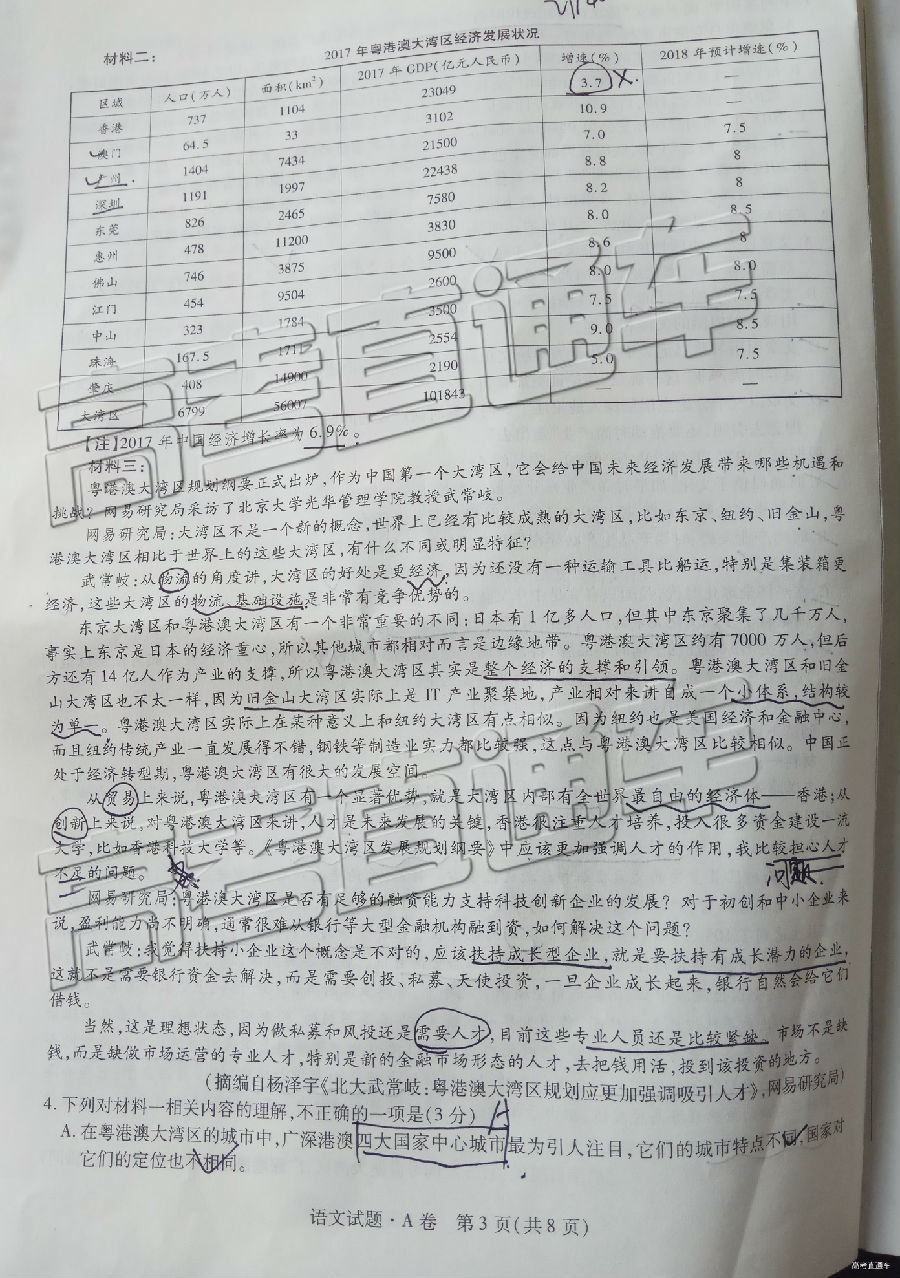 材料二：
2017年粤港澳大湾区经济发展状况
区域 人口(万人) 面积(km²) 2017年GDP(亿元人民币) 增速(%) 2018年预计增速(%)
香港 737 1104 23049 3.7 —
澳门 64.5 33 3102 10.9 —
广州 1404 7434 21500 7.0 7.5
深圳 1191 1997 22438 8.8 8
东莞 826 2465 7580 8.2 8
惠州 478 11200 3830 8.0 8.5
佛山 746 3875 9500 8.6 8
江门 454 9504 2600 8.0 8.0
中山 323 1784 3500 7.5 7.5
珠海 167.5 1711 2554 9.0 8.5
肇庆 408 14900 2190 5.0 7.5
大湾区 6799 56007 101843 — —
【注】2017年中国经济增长率为6.9%。
材料三：
粤港澳大湾区规划纲要正式出炉,作为中国第一个大湾区,它会给中国未来经济发展带来哪些机遇和
挑战？网易研究局采访了北京大学光华管理学院教授武常岐。
网易研究局:大湾区不是一个新的概念,世界上已经有比较成熟的大湾区,比如东京、纽约、旧金山,粤
港澳大湾区相比于世界上的这些大湾区,有什么不同或明显特征？
武常岐:从物流的角度讲,大湾区的好处是更经济,因为还没有一种运输工具比船运,特别是集装箱更
经济,这些大湾区的物流、基础设施是非常有竞争优势的。
东京大湾区和粤港澳大湾区有一个非常重要的不同:日本有1亿多人口,但其中东京聚集了几千万人,
事实上东京是日本的经济重心,所以其他城市都相对而言是边缘地带。粤港澳大湾区约有7000万人,但后
方还有14亿人作为产业的支撑,所以粤港澳大湾区其实是整个经济的支撑和引领。粤港澳大湾区和旧金
山大湾区也不太一样,因为旧金山大湾区实际上是IT产业聚集地,产业相对来讲自成一个小体系,结构较
为单一。粤港澳大湾区实际上在某种意义上和纽约大湾区有点相似。因为纽约也是美国经济和金融中心,
而且纽约传统产业一直发展得不错,钢铁等制造业实力都比较强,这点与粤港澳大湾区比较相似。中国正
处于经济转型期,粤港澳大湾区有很大的发展空间。
从贸易上来说,粤港澳大湾区有一个显著优势,就是大湾区内部有全世界最自由的经济体——香港;从
创新上来说,对粤港澳大湾区来讲,人才是未来发展的关键,香港很注重人才培养,投入很多资金建设一流
大学,比如香港科技大学等。《粤港澳大湾区发展规划纲要》中应该更加强调人才的作用,我比较担心人才
不足的问题。
问题
网易研究局:粤港澳大湾区是否有足够的融资能力支持科技创新企业的发展？对于初创和中小企业来
说,盈利能力尚不明确,通常很难从银行等大型金融机构融到资,如何解决这个问题？
武常岐:我觉得扶持小企业这个概念是不对的,应该扶持成长型企业,就是要扶持有成长潜力的企业,
这就不是需要银行资金去解决,而是需要创投、私募、天使投资,一旦企业成长起来,银行自然会给它们
借钱。
当然,这是理想状态,因为做私募和风投还是需要人才,目前这些专业人员还是比较紧缺。市场不是缺
钱,而是缺做市场运营的专业人才,特别是新的金融市场形态的人才,去把钱用活,投到该投资的地方。
(摘编自杨泽宇《北大武常岐:粤港澳大湾区规划应更加强调吸引人才》,网易研究局)
4.下列对材料一相关内容的理解,不正确的一项是(3分) A
A.在粤港澳大湾区的城市中,广深港澳四大国家中心城市最为引人注目,它们的城市特点不同,国家对
它们的定位也不相同。
语文试题·A卷 第3页(共8页)
高考直通车
高考直通车
高考直通车